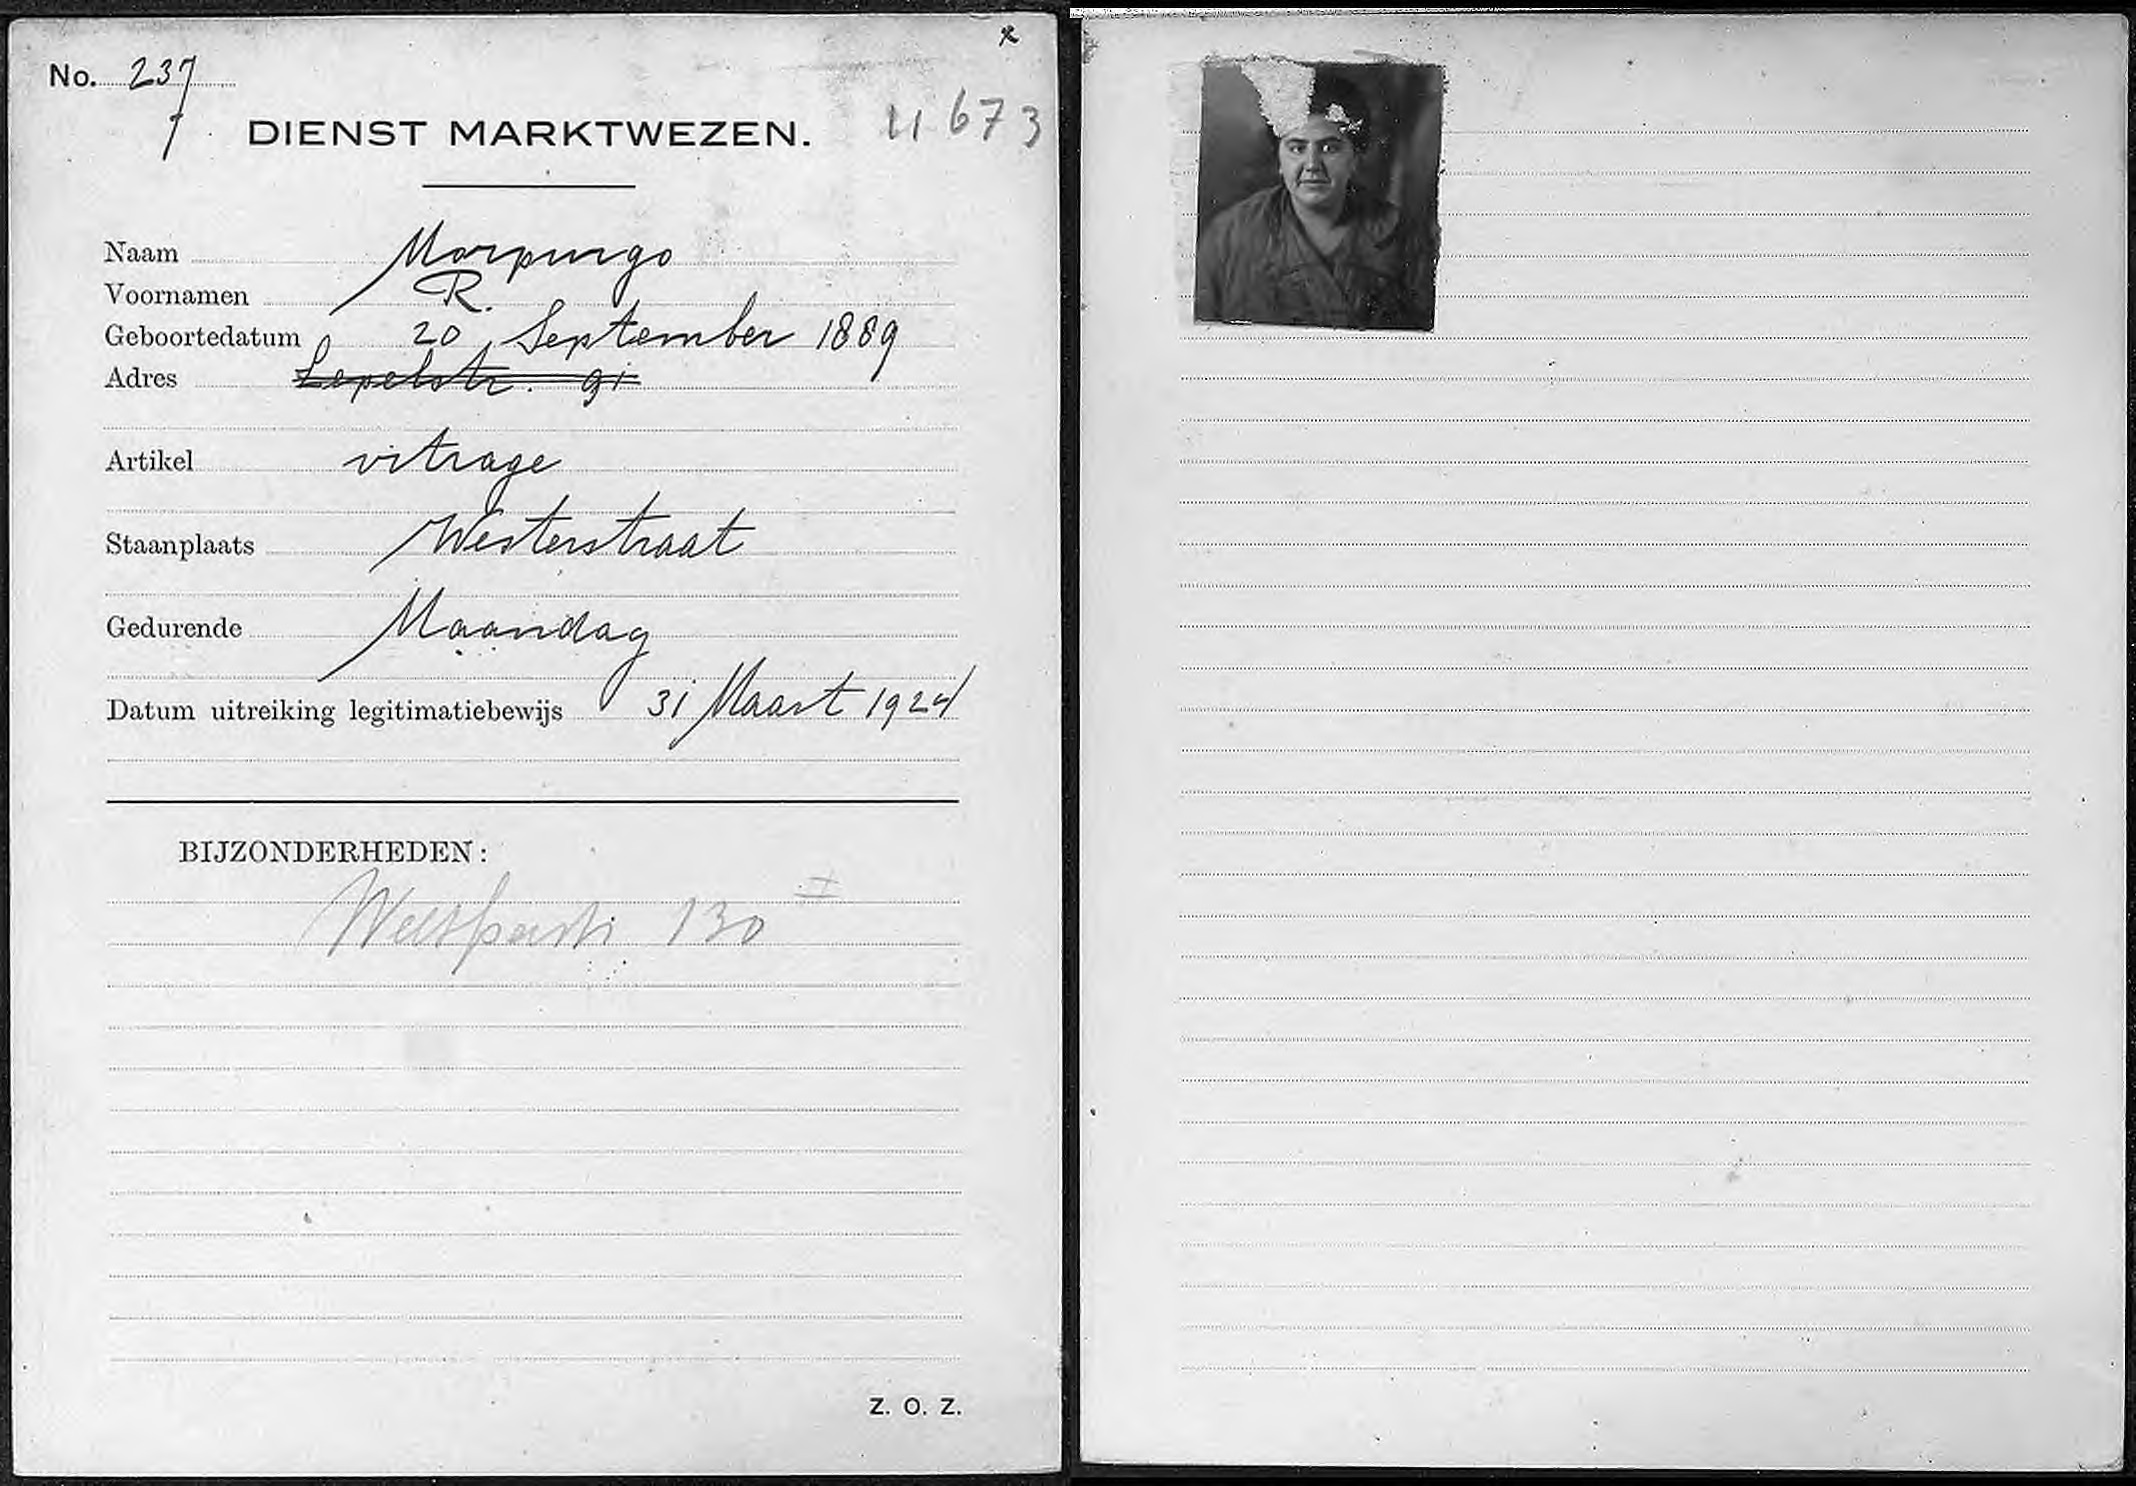 No. 237
11673
DIENST MARKTWEZEN.
Naam Morpurgo
Voornamen R.
Geboortedatum 20 September 1889
Adres Lepelstr. 91
Artikel vitrage
Staanplaats Westerstraat
Gedurende Maandag
Datum uitreiking legitimatiebewijs 31 Maart 1924
BIJZONDERHEDEN:
130 I
Z. O. Z.